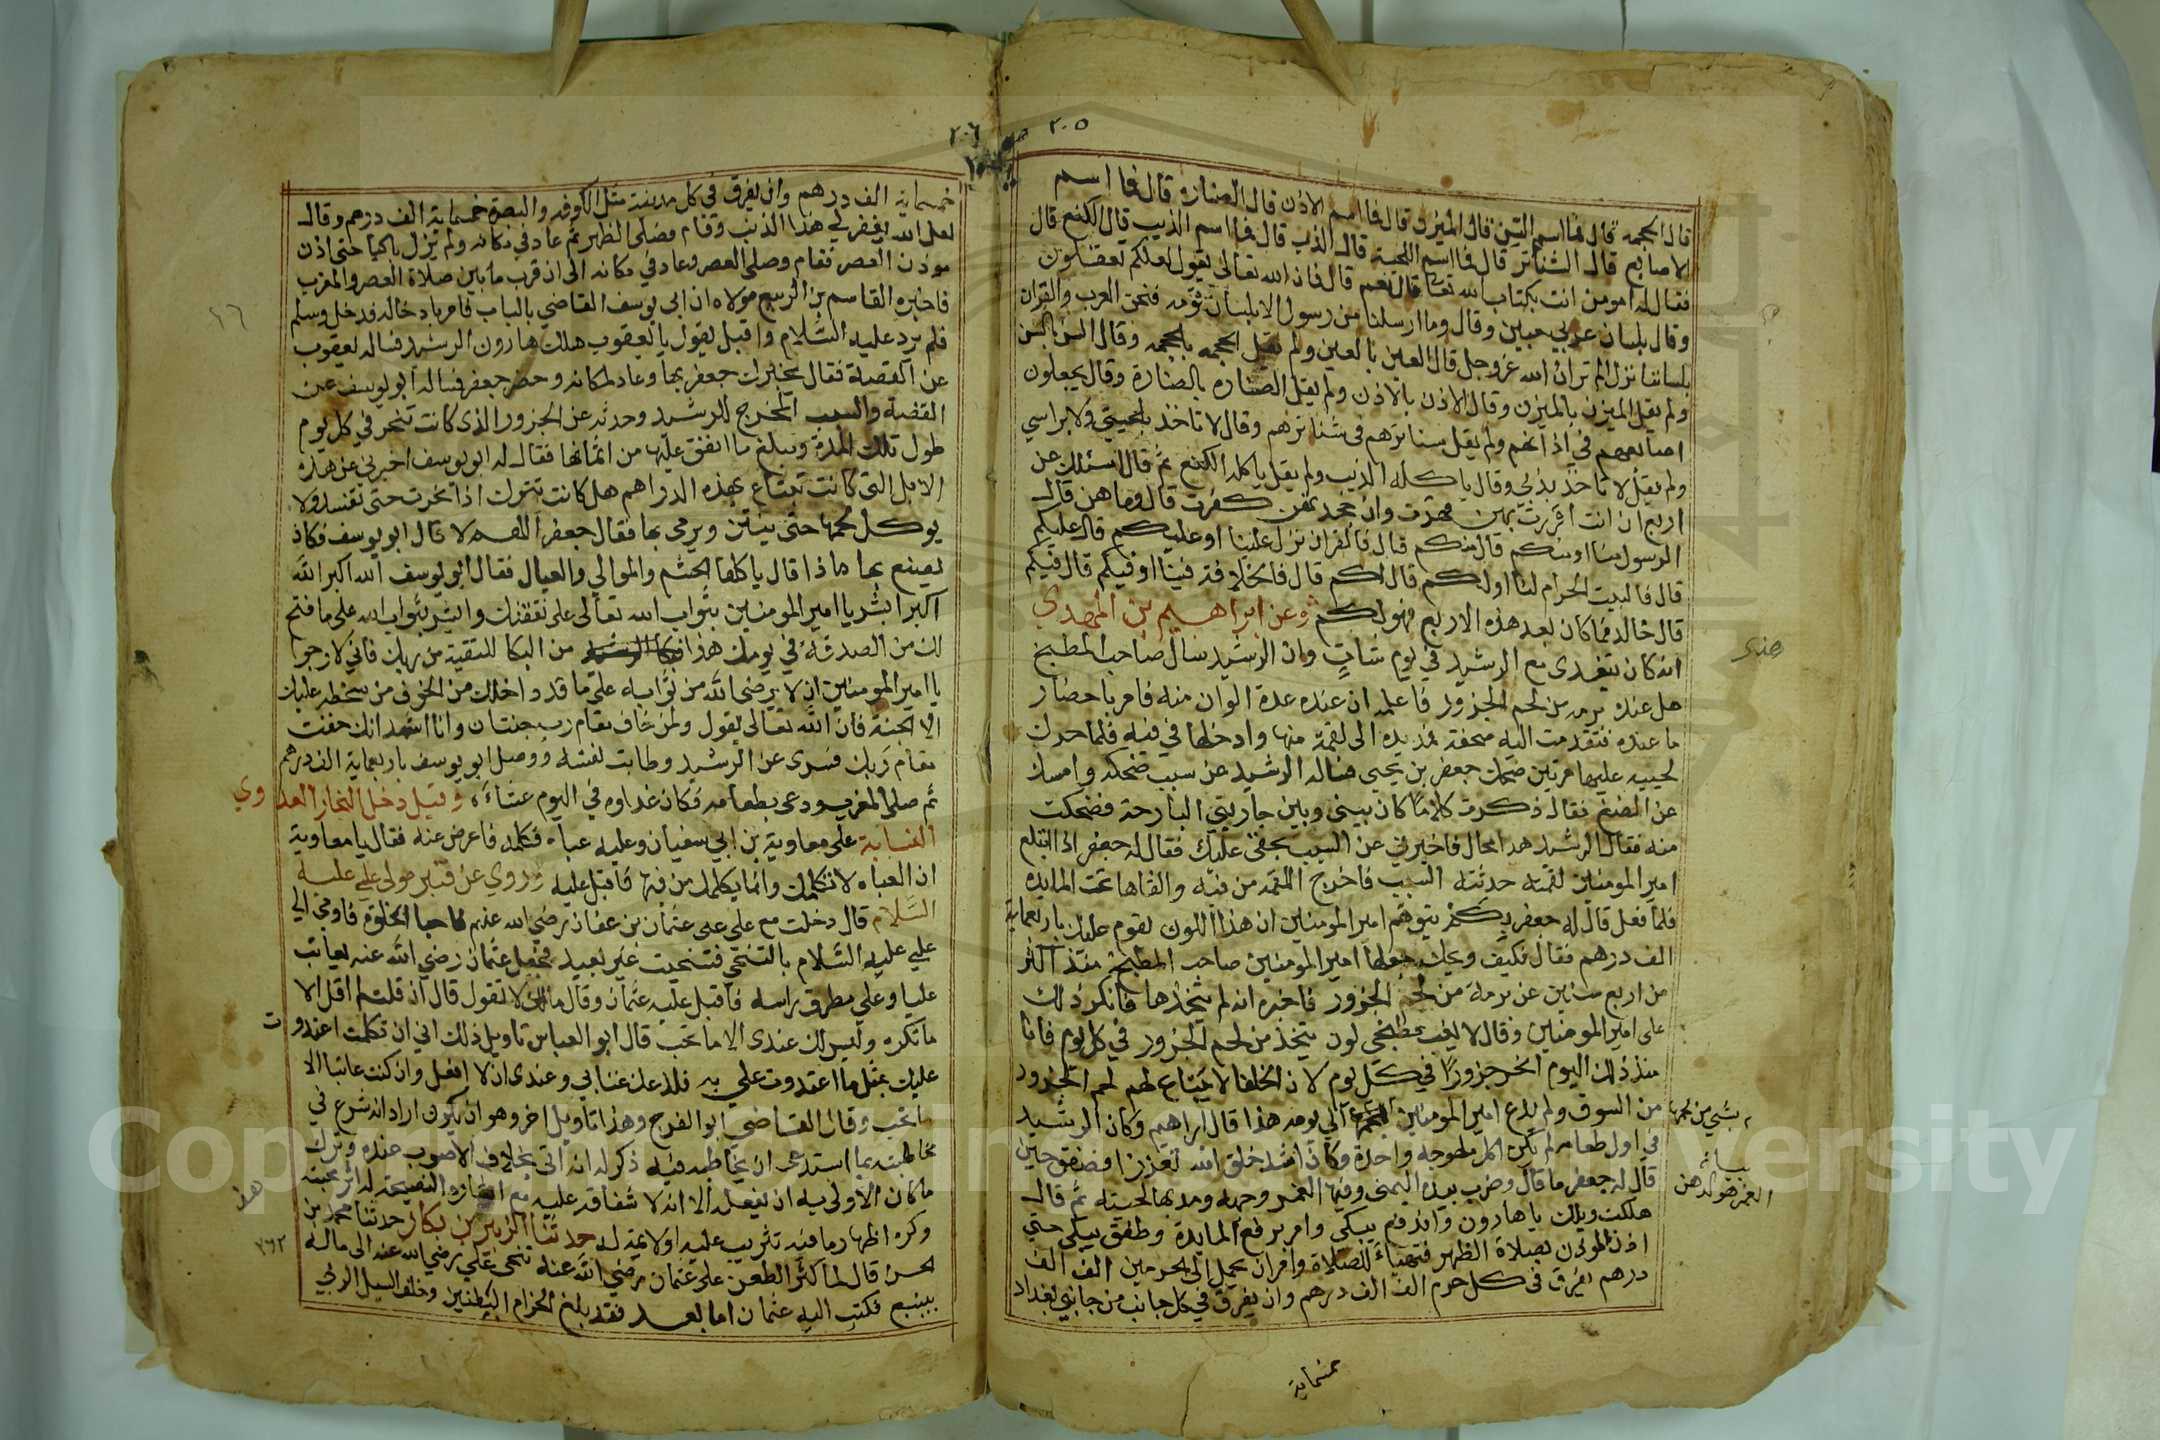 ٢٠٥
قال الجحمه قال فما اسم السن قال الميزن قال فما اسم الاذن قال الصناره قال فما اسم
الاصابع قال الشناتر قال فما اسم اللحية قال الذب قال فما اسم الذيب قال الكنع قال
فقال له امومن انت بكتاب الله تعالى قال نعم قال فان الله تعالى يقول لعلكم تعقلون
وقال بلسان عربي مبين وقال وما ارسلنا من رسول الا بلسان قومه فنحن العرب والقران
بلساننا نزل الم تر ان الله عز وجل قال العين بالعين ولم يقل الجحمه بالجحمه وقال السن بالسن
ولم يقل الميزن بالميزن وقال الاذن بالاذن ولم يقل الصناره بالصناره وقال يجعلون
اصابعهم في اذانهم ولم يقل شناترهم في شناترهم وقال لا تاخذ بلحيتي ولا براسي
ولم يقل لا تاخذ بذبي وقال ياكله الذيب ولم يقل ياكله الكنع ثم قال اسئلك عن
اربع ان انت اقررت بهن قهرت وان جحدتهن كفرت قال وما هن قال
الرسول منا او منكم قال منكم قال فالقران نزل علينا او عليكم قال عليكم
قال فالبيت الحرام لنا او لكم قال لكم قال فالخلافة فينا او فيكم قال فيكم
قال خالد فما كان بعد هذه الاربع فهو لكم وعن ابراهيم بن المهدي
انه كان يتغدى مع الرشيد في يوم شات وان الرشيد سال صاحب المطبخ
هل عنده برمه من لحم الجزور فاعلمه ان عنده عدة الوان منه فامر باحضار
ما عنده فتقدمت اليه صحفة فمد يده الى لقمة منها وادخلها في فيه فلما حرك
لحييه عليها مرتين ضحك جعفر بن يحيى فساله الرشيد عن سبب ضحكه وامسك
عن المضغ فقال ذكرت كلاما كان بيني وبين جاريتي البارحة فضحكت
منه فقال الرشيد هذا محال فاخبرني عن السبب بحقي عليك فقال له جعفر اذا ابتلع
امير المومنين لقمته حدثته السبب فاخرج اللقمة من فيه والقاها تحت المايده
فلما فعل قال له جعفر بكم يتوهم امير المومنين ان هذا اللون يقوم عليك باربعماية
الف درهم فقال فكيف ويحك جعلها امير المومنين صاحب المطبخ منذ اكثر
من اربع سنين عن برمة من لحم الجزور فاخبره انه لم يتخذها فانكر ذلك
على امير المومنين وقال لا يغب مطبخي لون يتخذ من لحم الجزور في كل يوم فانا
منذ ذلك اليوم انحر جزورا في كل يوم لان الخلفا لا يبتاع لهم لحم الجزور
من السوق ولم يدع امير المومنين الى يومه هذا قال ابراهيم وكان الرشيد
بشي من لحمها
في اول طعامه لم يكن اكل ملهوجه واحدة وكان اشد خلق الله تعززا
قال له جعفر ما قال وضرب بيده اليمنى وفيها الغمر وجهه ومد بها لحيته ثم قال
هلكت ويلك يا هارون واندفع يبكي وامر برفع المايدة وطفق يبكي حتى
اذن الموذن بصلاة الظهر فتهياء للصلاة وامر ان يحمل الى الحرمين الف الف
درهم يفرق في كل حرم الف الف درهم وان يفرق في كل جانب من جانبي بغداد
خمسماية
٢٠٦
خمسماية الف درهم وان يفرق في كل مدينة مثل الكوفه والبصرة خمسماية الف درهم وقال
لعل الله يغفر لي هذا الذنب وقام فصلى الظهر ثم عاد في مكانه ولم يزل باكيا حتى اذن
موذن العصر فقام وصلى العصر وعاد في مكانه الى ان قرب ما بين صلاة العصر والمغرب
فاخبره القاسم بن الربيع مولاه ان ابي يوسف القاضي بالباب فامر بادخاله فدخل وسلم
فلم يرد عليه السلام واقبل يقول يا يعقوب هلك هارون الرشيد فساله يعقوب
عن القصة فقال يخبرك جعفر بها وعاد لمكانه وحضر جعفر فساله ابو يوسف عن
القصة والسبب المخرج للرشيد وحدثه عن الجزور الذي كانت تنحر في كل يوم
طول تلك المدة ومبلغ ما انفق عليها من اثمانها فقال له ابو يوسف اخبرني عن هذه
الابل التي كانت تبتاع بهذه الدراهم هل كانت تترك اذا نحرت حتى تفسد ولا
يوكل لحمها حتى ينتن ويرمى بها فقال جعفر اللهم لا قال ابو يوسف فكان
يصنع بها ماذا قال ياكلها الحشم والموالي والعيال فقال ابو يوسف الله اكبر الله
اكبر ابشر يا امير المومنين بثواب الله تعالى على نفقتك وابشر بثواب الله على ما فتح
لك من الصدقة في يومك هذا من البكا للتقية من ربك فاني لارجوا
يا امير المومنين ان لا يرضى الله من ثوابه على ما قد داخلك من الخوف من سخطه عليك
الا الجنة فان الله تعالى يقول ولمن خاف مقام ربه جنتان وانا اشهد انك خفت
مقام ربك فسرى عن الرشيد وطابت نفسه ووصل ابو يوسف باربعماية الف درهم
ثم صلى المغرب ودعى بطعامه فكان غداوه في اليوم عشاءه وقيل دخل النخار العذ وي
النسابة على معاوية بن ابي سفيان وعليه عباء فكلمه فاعرض عنه فقال يا معاوية
ان العباه لا تكلمك وانما يكلمك من فيها فاقبل عليه وروي عن قنبر مولى علي عليه
السلام قال دخلت مع علي على عثمان بن عفان رضي الله عنهم فاحبا الخلوة فاومى الي
علي عليه السلام بالتنحي فتنحيت غير بعيد فجعل عثمان رضي الله عنه يعاتب
عليا وعلي مطرق براسه فاقبل عليه عثمان وقال مالك لا تقول قال ان قلت لم اقل الا
ما تكره وليس لك عندي الا ما تحب قال ابو العباس تاويل ذلك اني ان تكلمت اعتدد ت
عليك بمثل ما اعتددت علي به فلذعك عتابي وعندي ان لا افعل وان كنت عاتبا الا
ما تحب وقال القاضي ابو الفرج وهذا تاويل اخر وهو ان يكون اراد انه شرع في
مخاطبته بما استدعى ان يخاطبه فيه ذكر له انه اتى بخلاف الاصوب عنده وترك
ما كان الاولى به ان يفعله الا انه لا شفاقه عليه مع النصيحة له اثر محبته
وكره اظهار ما فيه تثريب عليه او لا يمة له حدثنا الزبير بن بكار حدثنا محمد بن
الحسن قال لما كثر الطعن على عثمان رضي الله عنه تنحى علي رضي الله عنه الى ماله
بينبع فكتب اليه عثمان اما بعد فقد بلغ الحزام الطبيين وخلف السيل الربي
Copyright © King Saud University